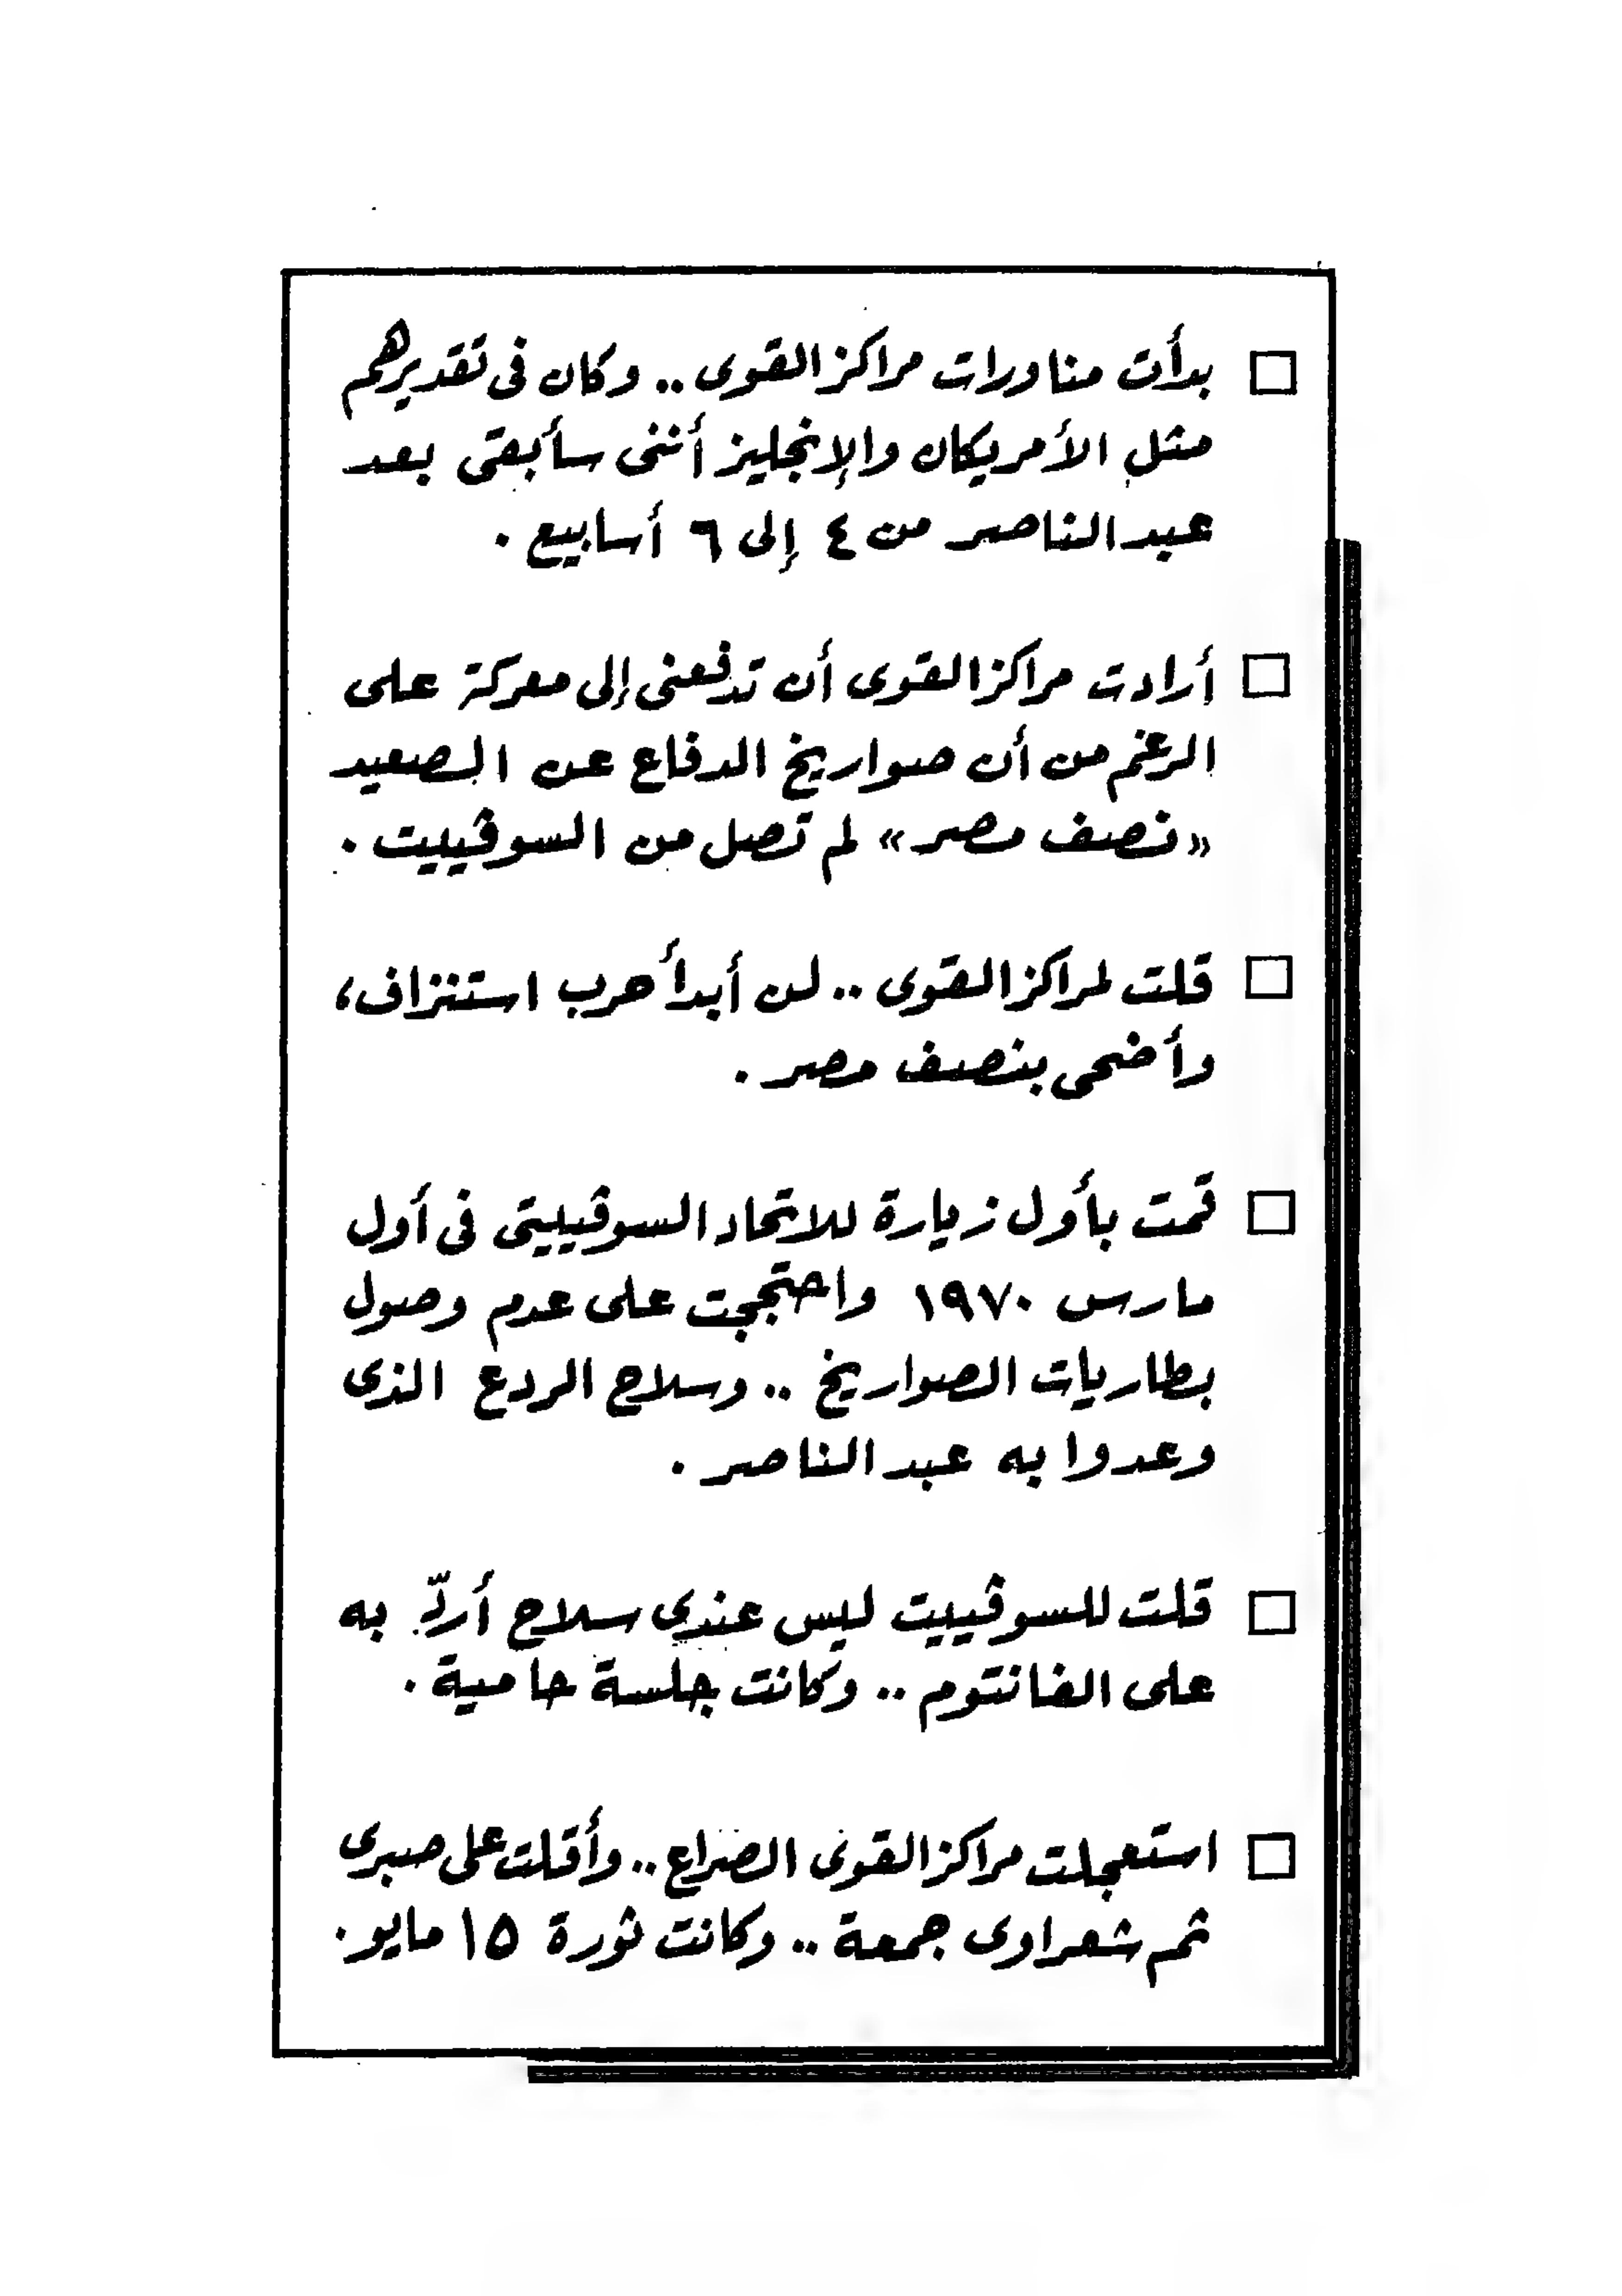 □ بدأت مناورات مراكز القوى .. وكان فى تقديرهم
مثل الأمريكان والإنجليز أننى سأبقى بعد
عبد الناصر من ٤ إلى ٦ أسابيع .
□ أرادت مراكز القوى أن تدفعنى إلى معركة على
الرغم من أن صواريخ الدفاع عن الصعيد
«نصف مصر» لم تصل من السوڤييت .
□ قلت لمراكز القوى .. لن أبدأ حرب استنزاف،
وأضحى بنصف مصر .
□ قمت بأول زيارة للاتحاد السوڤييتى فى أول
مارس ١٩٧٠ واحتججت على عدم وصول
بطاريات الصواريخ .. وسلاح الردع الذى
وعدوا به عبد الناصر .
□ قلت للسوڤييت ليس عندى سلاح أردّ به
على الفانتوم .. وكانت جلسة حامية .
□ استعجلت مراكز القوى الصراع .. وأقلت على صبرى
ثم شعراوى جمعة .. وكانت ثورة ١٥ مايو .